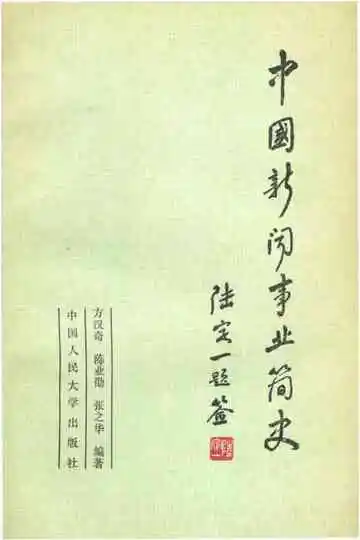 中國新闻事业简史
陆定一题签
方汉奇 陈业劭 张之华 编著
中国人民大学出版社